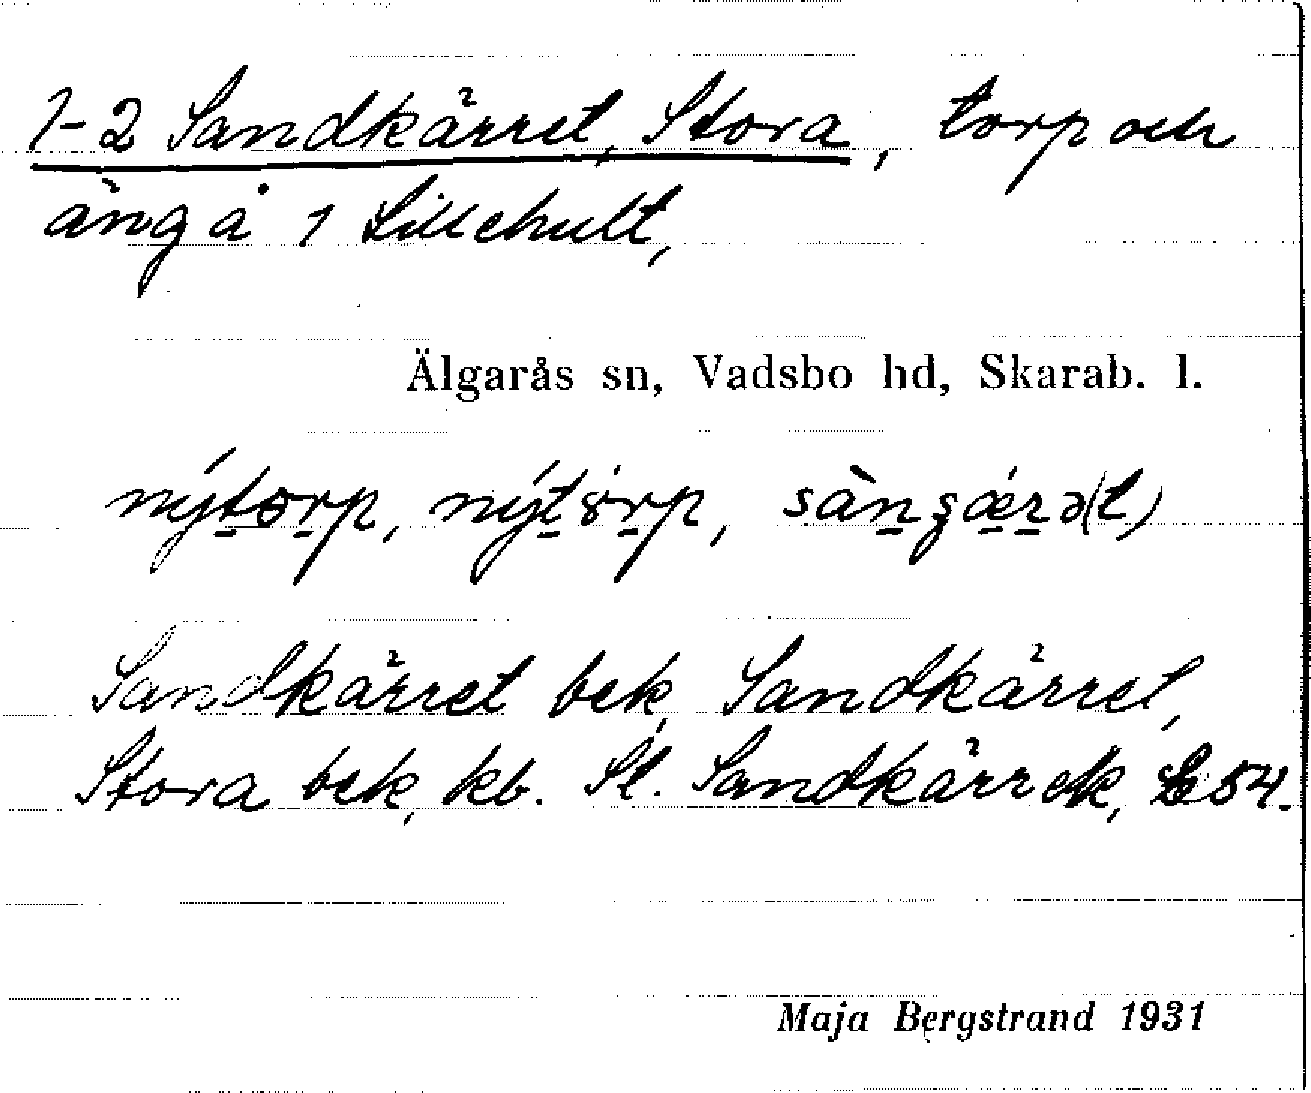 1-2 Sandkärret, Stora, torp och
äng å 1 Lillehult,
Älgarås sn, Vadsbo hd, Skarab. l.
nýtorp, nýtörp, sàn̠ʂǽrə(t)
Sandkärret bek, Sandkärret,
Stora bek, kb. St. Sandkärrek, 54.
Maja Bergstrand 1931